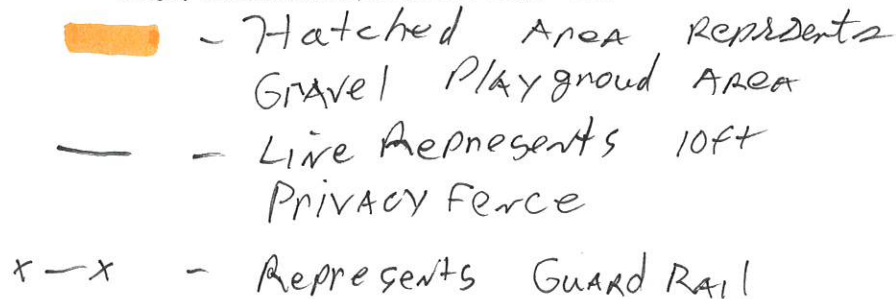 - Hatched Area Reprsents
Gravel Playgroud Area
- Line Represents 10ft
Privacy Fence
x—x - Represents Guard Rail